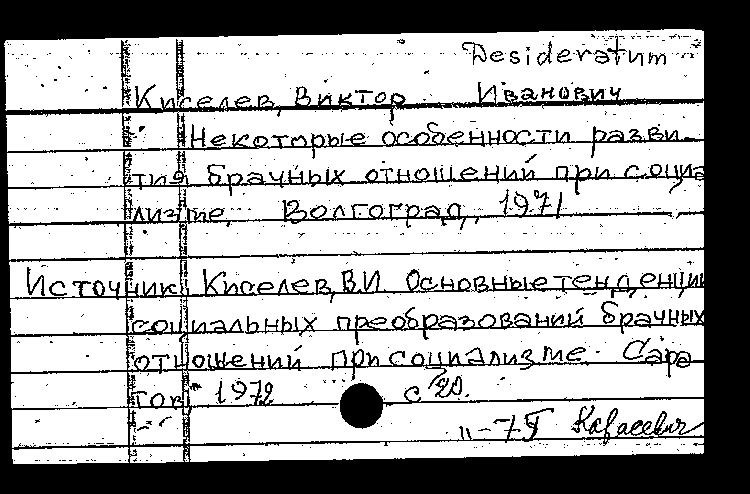 Desideratum
Киселев, Виктор Иванович
Некоторые особенности разви-
тия брачных отношений при социа
лизме. Волгоград, 1971
Источник: Киселев, В.И. Основные тенденции
социальных преобразований брачных
отношений при социализме. Сара
тов, 1972 с 20.
Карасевич